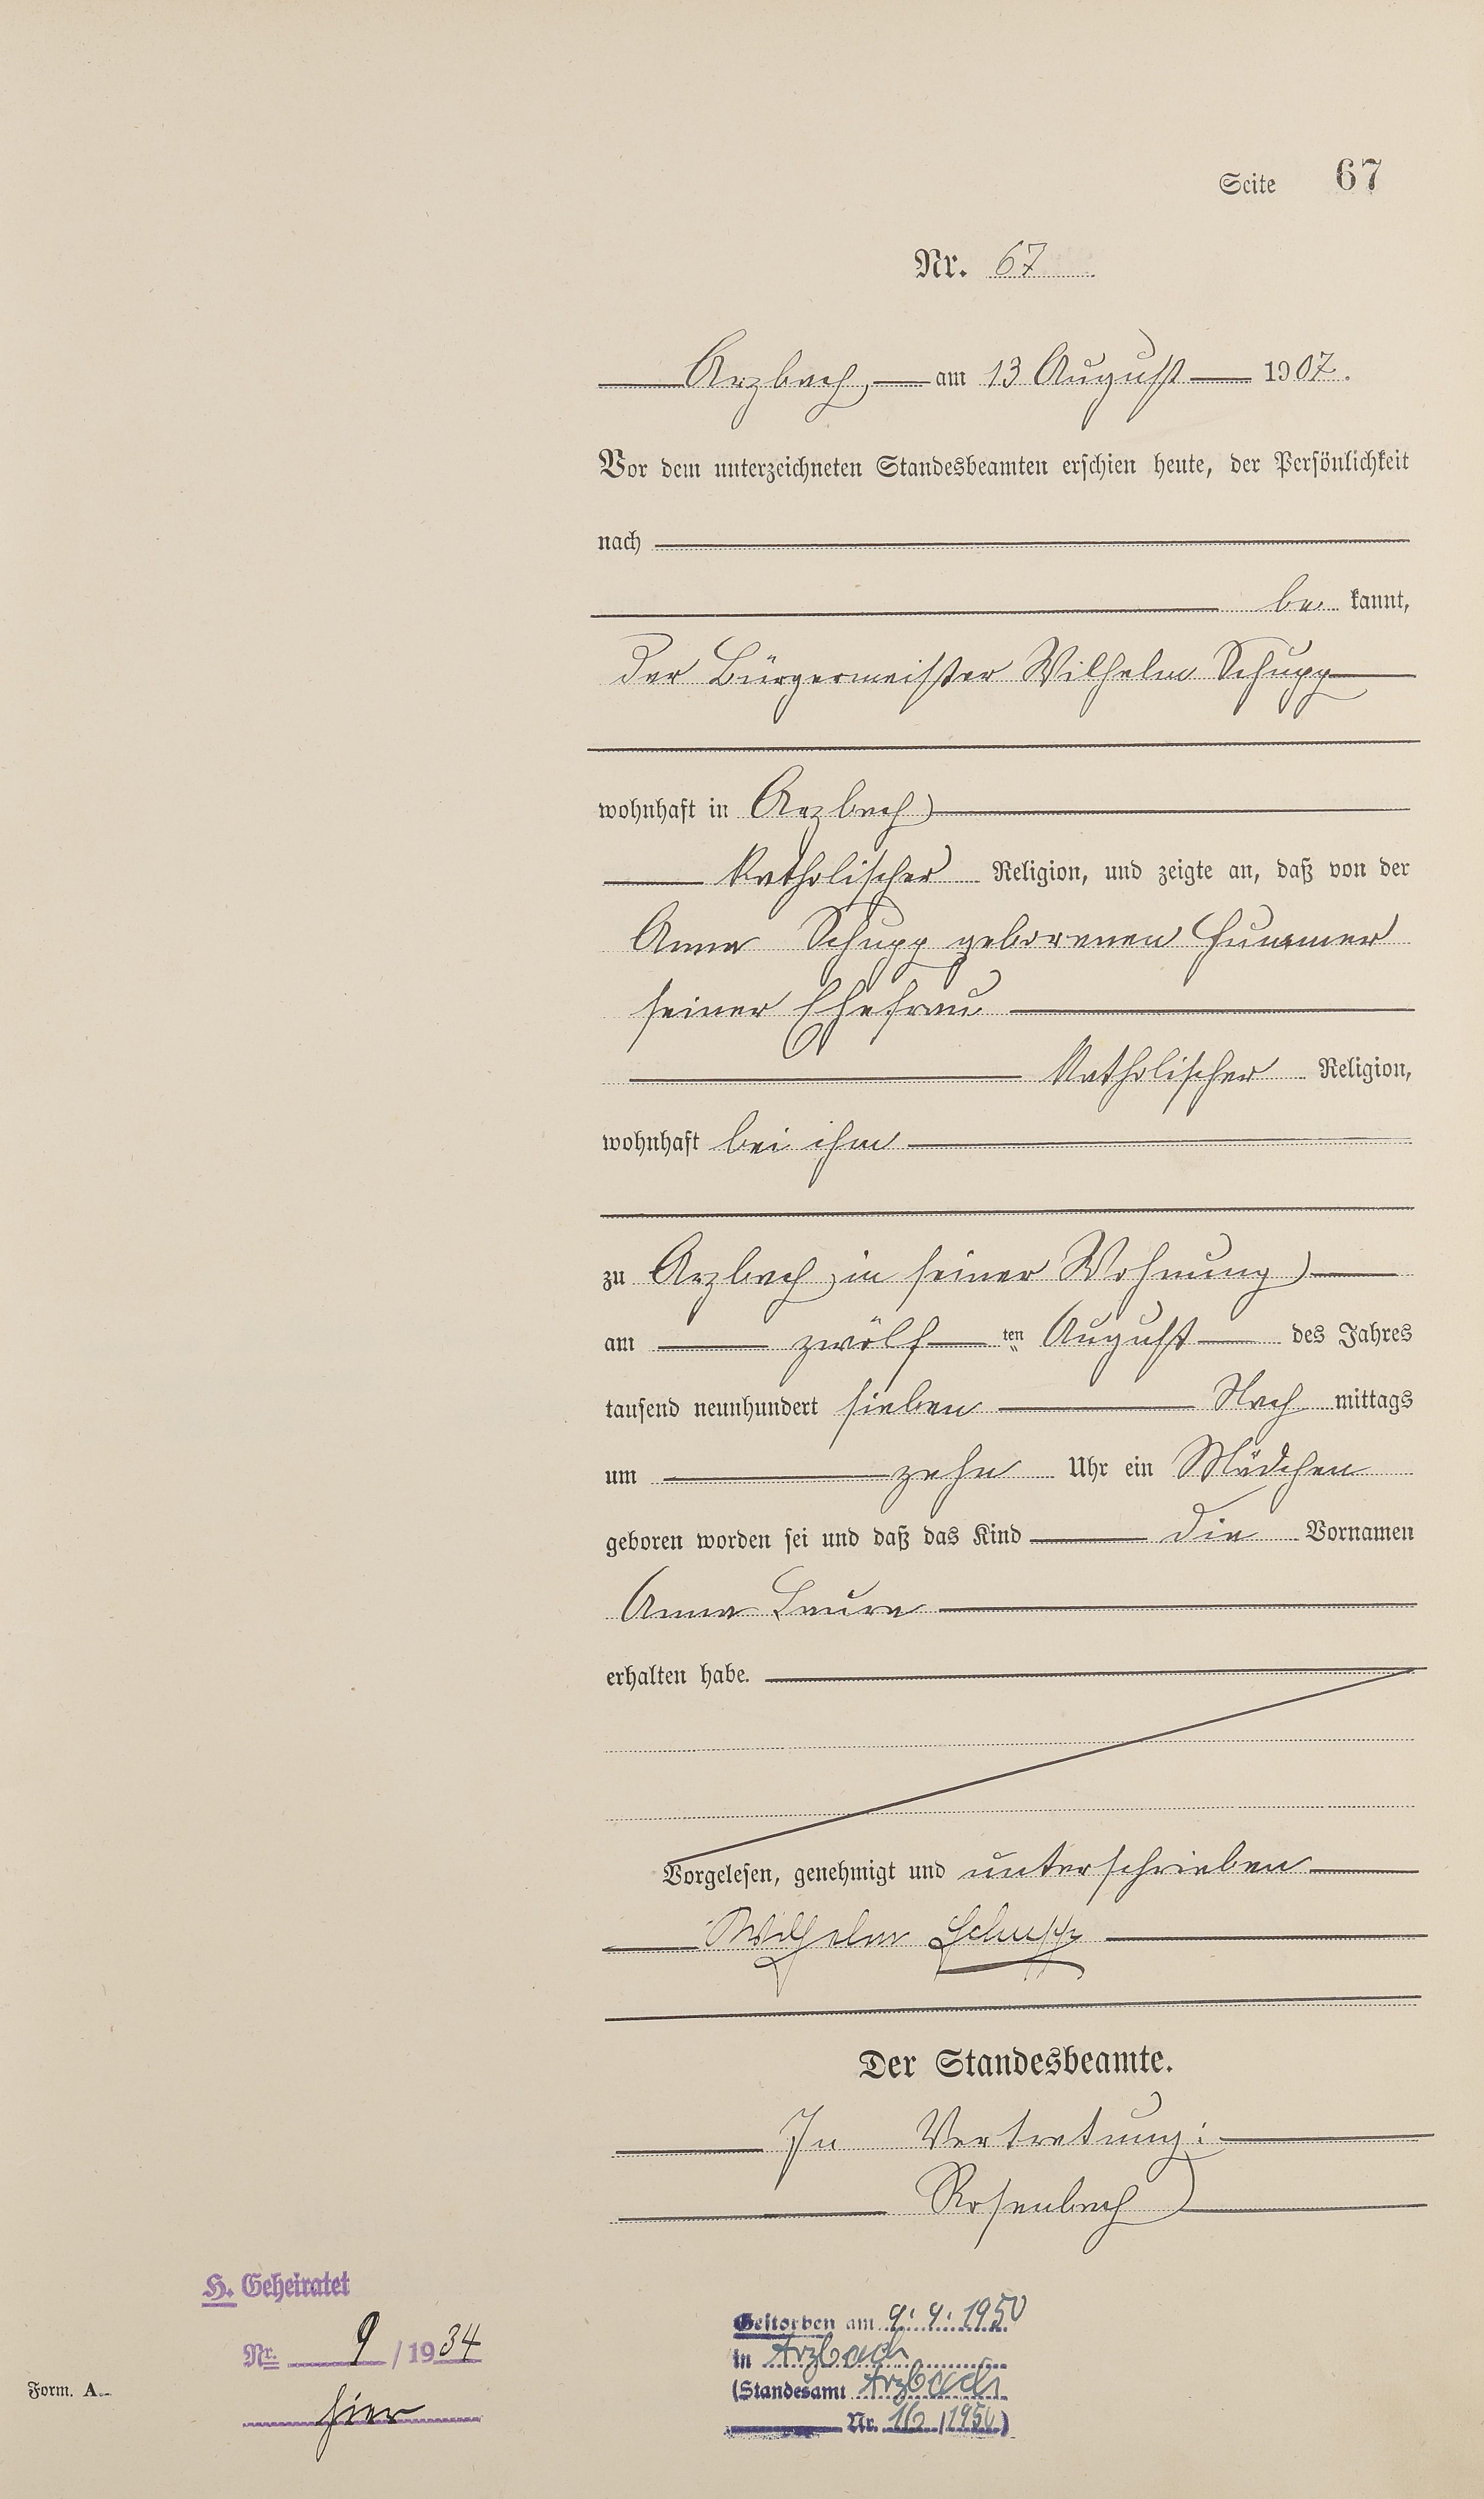 Seite 67
Nr. 67
Arzbach, am 13 August 1907.
Vor dem unterzeichneten Standesbeamten erschien heute, der Persönlichkeit
nach
be kannt,
der Bürgermeister Wilhelm Schupp
wohnhaft in Arzbach
katholischer Religion, und zeigte an, daß von der
Anna Schupp geborenen Hummer
seiner Ehefrau
katholischer Religion,
wohnhaft bei ihm
zu Arzbach, in seiner Wohnung
am zwölf ten August des Jahres
tausend neunhundert sieben Nach mittags
um zehn Uhr ein Mädchen
geboren worden sei und daß das Kind die Vornamen
Anna Laura
erhalten habe.
Vorgelesen, genehmigt und unterschrieben
Wilhelm Schupp
Der Standesbeamte.
In Vertretung:
Rosenbach
H. Geheiratet
Nr. 9 / 1934
hier
Gestorben am 9. 9. 1950
in Arzbach
(Standesamt Arzbach
Nr. 16 / 1950)
Form. A.